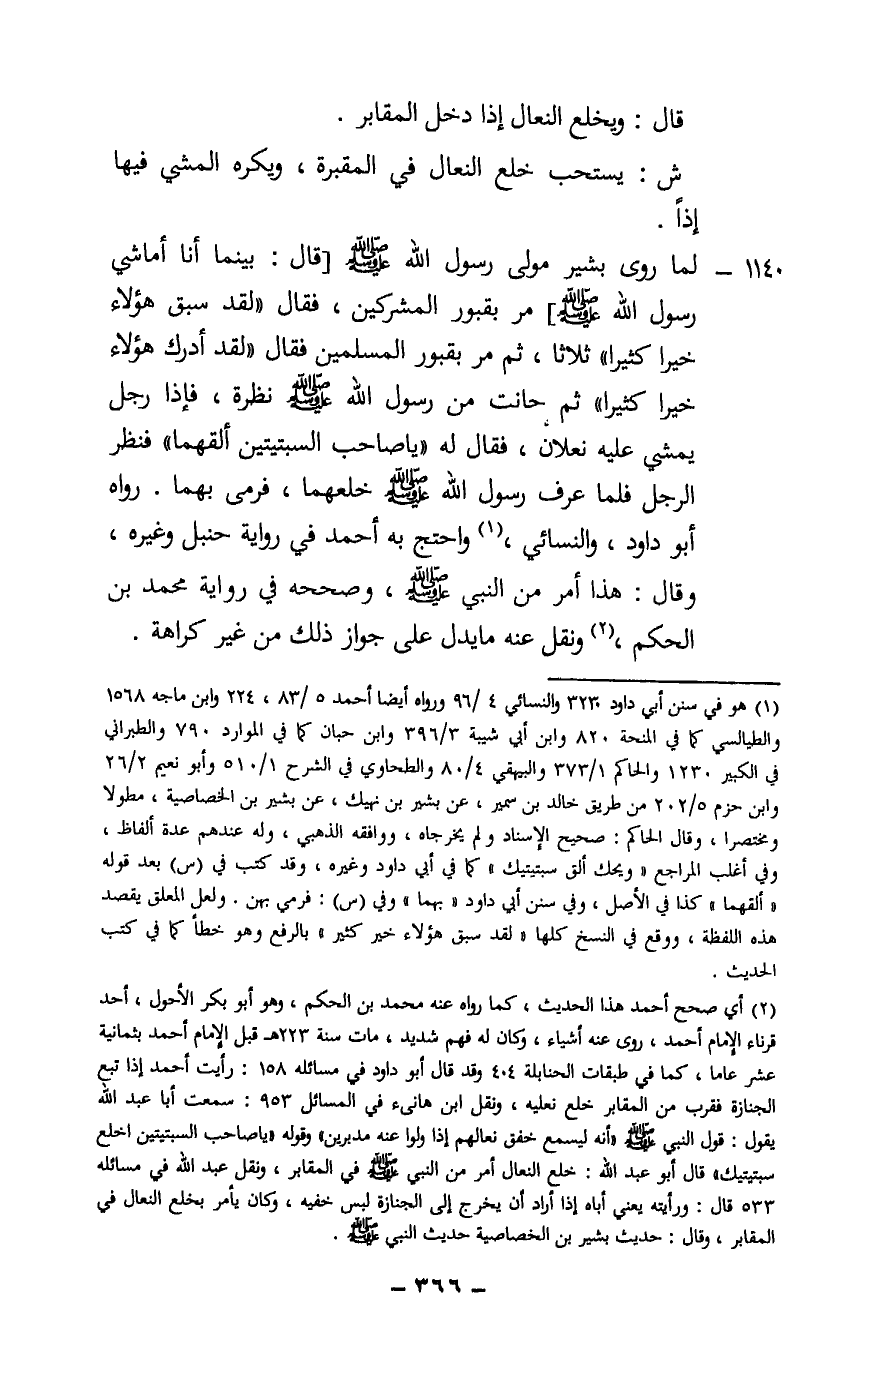 قال : ويخلع النعال إذا دخل المقابر .
ش : يستحب خلع النعال في المقبرة ، ويكره المشي فيها
إذاً .
١١٤٠ – لما روى بشير مولى رسول الله ﷺ [قال : بينما أنا أماشي
رسول الله ﷺ] مر بقبور المشركين ، فقال «لقد سبق هؤلاء
خيرا كثيرا» ثلاثا ، ثم مر بقبور المسلمين فقال «لقد أدرك هؤلاء
خيرا كثيرا» ثم حانت من رسول الله ﷺ نظرة ، فإذا رجل
يمشي عليه نعلان ، فقال له «ياصاحب السبتيتين ألقهما» فنظر
الرجل فلما عرف رسول الله ﷺ خلعهما ، فرمى بهما . رواه
أبو داود ، والنسائي ،(١) واحتج به أحمد في رواية حنبل وغيره ،
وقال : هذا أمر من النبي ﷺ ، وصححه في رواية محمد بن
الحكم ،(٢) ونقل عنه مايدل على جواز ذلك من غير كراهة .
(١) هو في سنن أبي داود ٣٢٣٠ والنسائي ٤ /٩٦ ورواه أيضا أحمد ٥ /٨٣ ، ٢٢٤ وابن ماجه ١٥٦٨
والطيالسي كما في المنحة ٨٢٠ وابن أبي شيبة ٣٩٦/٣ وابن حبان كما في الموارد ٧٩٠ والطبراني
في الكبير ١٢٣٠ والحاكم ٣٧٣/١ والبيهقي ٨٠/٤ والطحاوي في الشرح ٥١٠/١ وأبو نعيم ٢٦/٢
وابن حزم ٢٠٢/٥ من طريق خالد بن سمير ، عن بشير بن نهيك ، عن بشير بن الخصاصية ، مطولا
ومختصرا ، وقال الحاكم : صحيح الإسناد ولم يخرجاه ، ووافقه الذهبي ، وله عندهم عدة ألفاظ ،
وفي أغلب المراجع « ويحك ألق سبتيتيك » كما في أبي داود وغيره ، وقد كتب في (س) بعد قوله
« ألقهما » كذا في الأصل ، وفي سنن أبي داود « بهما » وفي (س) : فرمي بهن . ولعل المعلق يقصد
هذه اللفظة ، ووقع في النسخ كلها « لقد سبق هؤلاء خير كثير » بالرفع وهو خطأ كما في كتب
الحديث .
(٢) أي صحح أحمد هذا الحديث ، كما رواه عنه محمد بن الحكم ، وهو أبو بكر الأحول ، أحد
قرناء الإمام أحمد ، روى عنه أشياء ، وكان له فهم شديد ، مات سنة ٢٢٣هـ قبل الإمام أحمد بثمانية
عشر عاما ، كما في طبقات الحنابلة ٤٠٤ وقد قال أبو داود في مسائله ١٥٨ : رأيت أحمد إذا تبع
الجنازة فقرب من المقابر خلع نعليه ، ونقل ابن هانىء في المسائل ٩٥٣ : سمعت أبا عبد الله
يقول : قول النبي ﷺ «أنه ليسمع خفق نعالهم إذا ولوا عنه مدبرين» وقوله «ياصاحب السبتيتين اخلع
سبتيتيك» قال أبو عبد الله : خلع النعال أمر من النبي ﷺ في المقابر ، ونقل عبد الله في مسائله
٥٣٣ قال : ورأيته يعني أباه إذا أراد أن يخرج إلى الجنازة لبس خفيه ، وكان يأمر بخلع النعال في
المقابر ، وقال : حديث بشير بن الخصاصية حديث النبي ﷺ .
– ٣٦٦ –